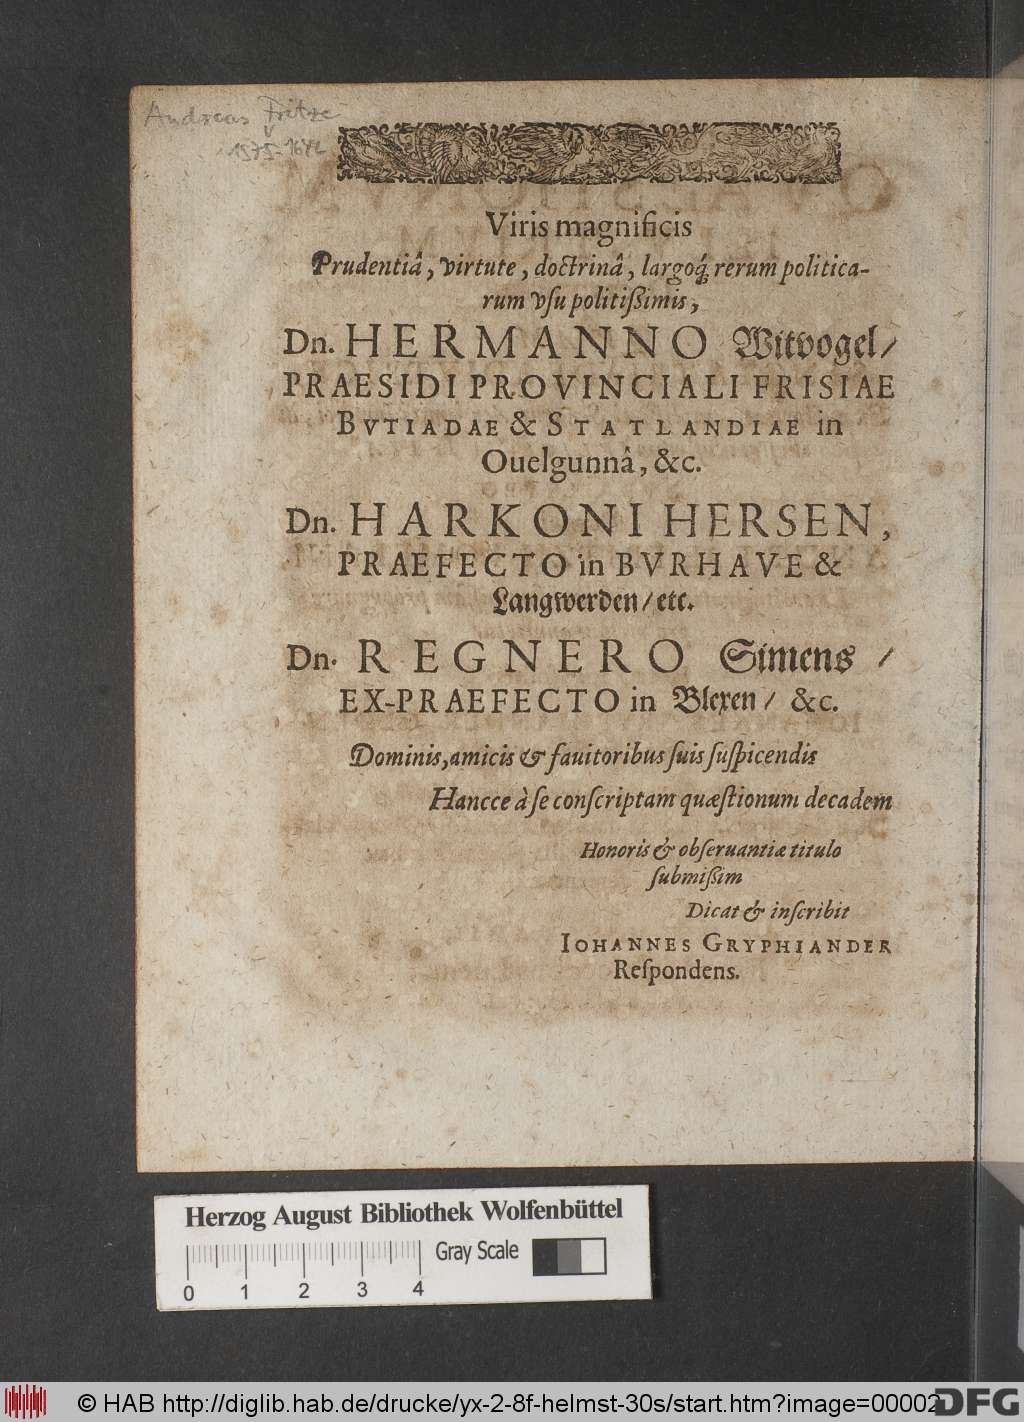 Andreas Fritze
1575-1642
Viris magnificis
Prudentiâ, virtute, doctrinâ, largoq́; rerum politica-
rum vſu politißimis,
Dn. HERMANNO Witvogel/
PRAESIDI PROVINCIALI FRISIAE
BVTIADAE & STATLANDIAE in
Ouelgunnâ, &c.
Dn. HARKONI HERSEN,
PRAEFECTO in BVRHAVE &
Langwerden/ etc.
Dn. REGNERO Simens/
EX-PRAEFECTO in Blexen/ &c.
Dominis, amicis & fauitoribus ſuis ſuſpicendis
Hancce à ſe conſcriptam quæſtionum decadem
Honoris & obſeruantiæ titulo
ſubmißim
Dicat & inſcribit
IOHANNES GRYPHIANDER
Reſpondens.
Herzog August Bibliothek Wolfenbüttel
Gray Scale
0 1 2 3 4
© HAB http://diglib.hab.de/drucke/yx-2-8f-helmst-30s/start.htm?image=00002
DFG